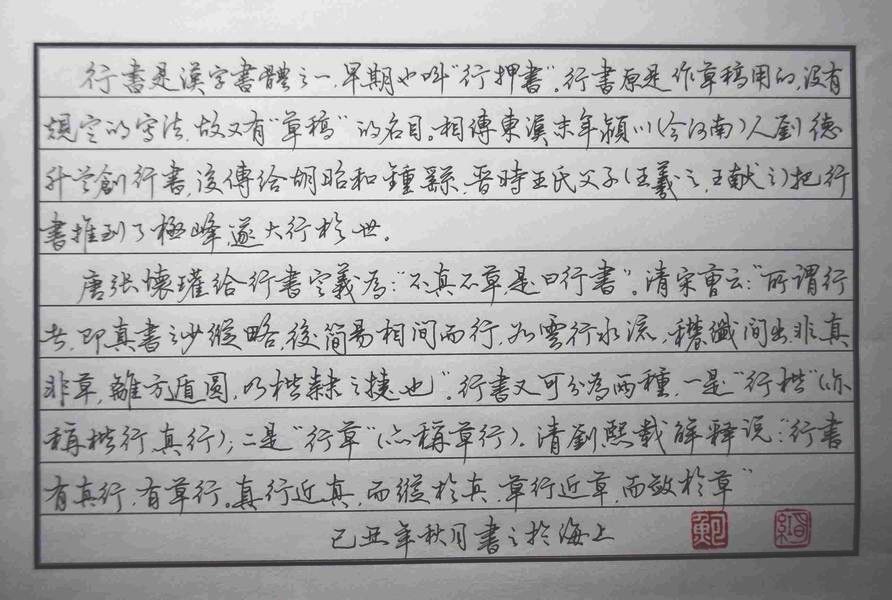 行書是漢字書體之一，早期也叫“行押書”。行書原是作草稿用的，没有
規定的寫法，故又有“草稿”的名目。相傳東漢末年潁川（今河南）人劉德
升首創行書，後傳给胡昭和鍾繇，晋時王氏父子（王羲之、王献之）把行
書推到了極峰，遂大行於世。
唐张懷瓘给行書定義為：“不真不草，是曰行書”。清宋曹云：“所謂行
者，即真書之少縱略，後簡易相間而行，如雲行水流，穠纖間出，非真
非草，離方遁圆，乃楷隸之捷也”。行書又可分為兩種，一是“行楷”（亦
稱楷行、真行）；二是“行草”（亦稱草行）。清劉熙載解释说：“行書
有真行，有草行。真行近真，而縱於真，草行近草，而斂於草”
己丑年秋月書之於海上
鮑